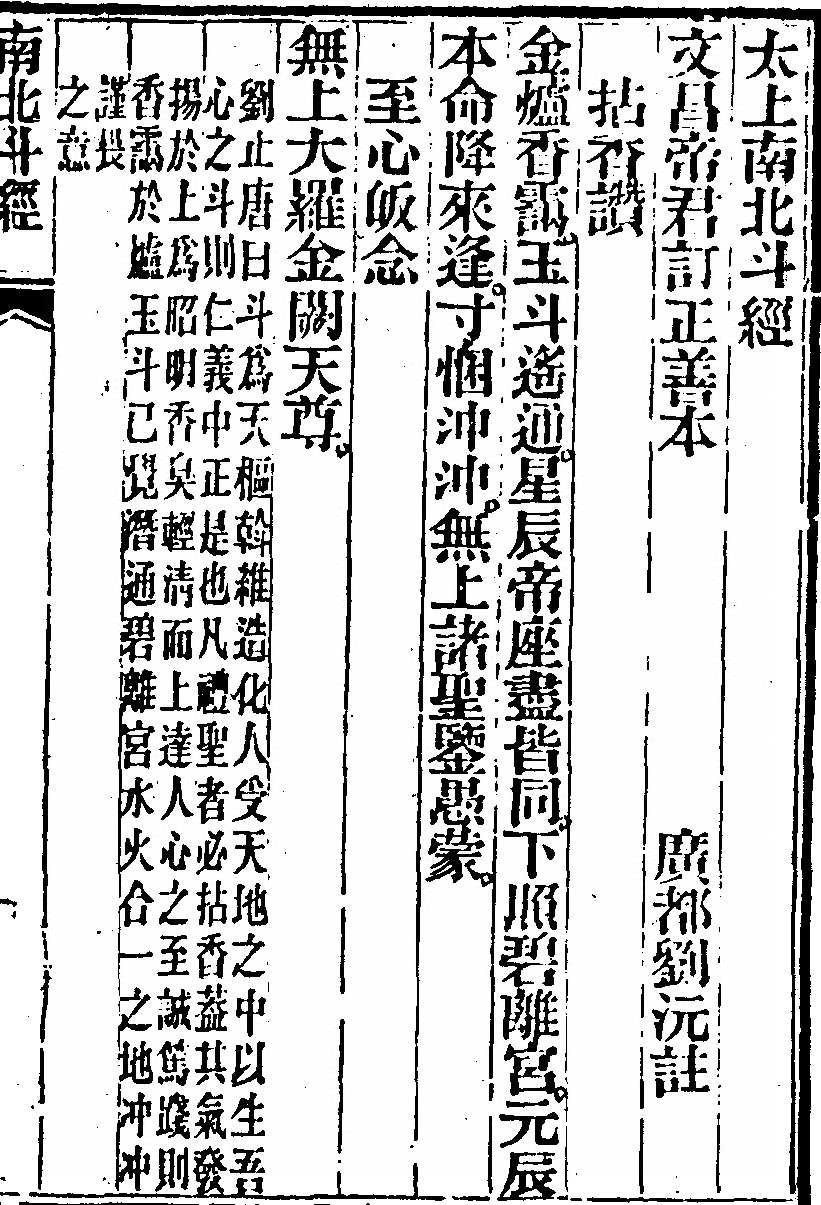 太上南北斗經
文昌帝君訂正善本 廣都劉沅註
拈香讚
金爐香靄。玉斗遙通。星辰帝座盡皆同。下照碧離宮。元辰
本命降來逢。寸悃沖沖。無上諸聖鑒愚蒙。
至心皈念
無上大羅金闕天尊。
劉止唐曰斗爲天樞斡維造化人受天地之中以生吾
心之斗則仁義中正是也凡禮聖者必拈香葢其氣發
揚於上爲昭明香臭輕清而上達人心之至誠篤踐則
香靄於爐玉斗已覺潛通碧離宮水火合一之地冲冲
謹畏
之意
南北斗經